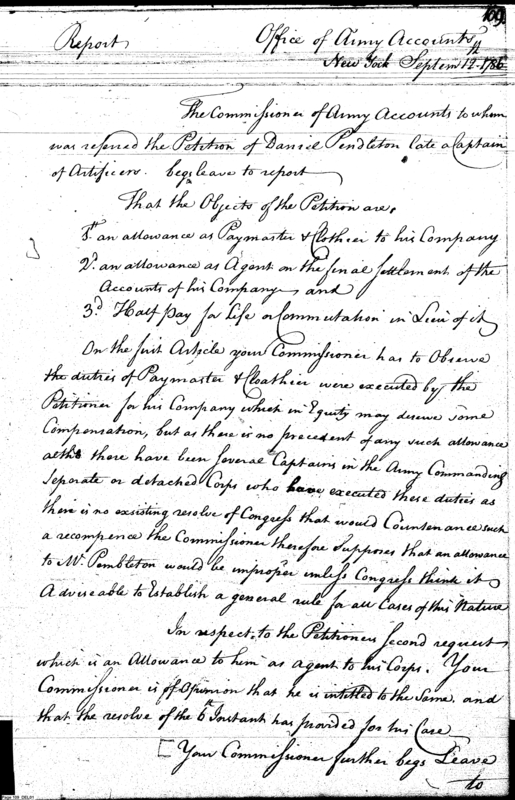 169
Report
Office of Army Accounts
New York Septem 12th 1786
The Commissioner of Army Accounts to whom
was referred the Petition of Daniel Pendleton late a Captain
of Artificers. begs leave to report
That the Objects of the Petition are,
1st an allowance as Paymaster & Clothier to his Company
2d. an allowance as Agent on the final Settlement of the
Accounts of his Company and
3.d Half pay for Life or Commutation in Lieu of it
On the first Article your Commissioner has to Observe
the duties of Paymaster & Cloathier were executed by the
Petitioner for his Company which in Equity may deserve some
Compensation, but as there is no precedent of any such allowance
altho there have been Several Captains in the Army Commanding
Seperate or detached Corps who have executed these duties as
there is no exsisting resolve of Congress that would Countenance such
a recompence the Commissioner therefore Supposes that an allowance
to Mr. Pembleton would be improper unless Congress think it
Adviseable to Establish a general rule for all Cases of this Nature
In respect to the Petitioners second request
which is an Allowance to him as agent to his Corps. Your
Commissioner is of Opinion that he is intitled to the Same. and
that the resolve of the 6th Instant has provided for his Case
[Your Commissioner further begs Leave
to